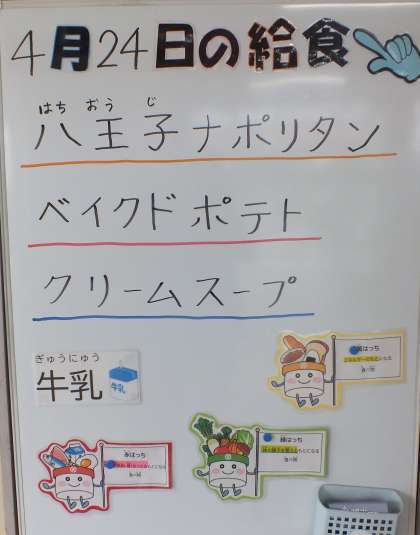 4月24日の給食
はち おう じ
八王子ナポリタン
ベイクドポテト
クリームスープ
ぎゅうにゅう
牛乳
牛乳
黄はっち
赤はっち
緑はっち